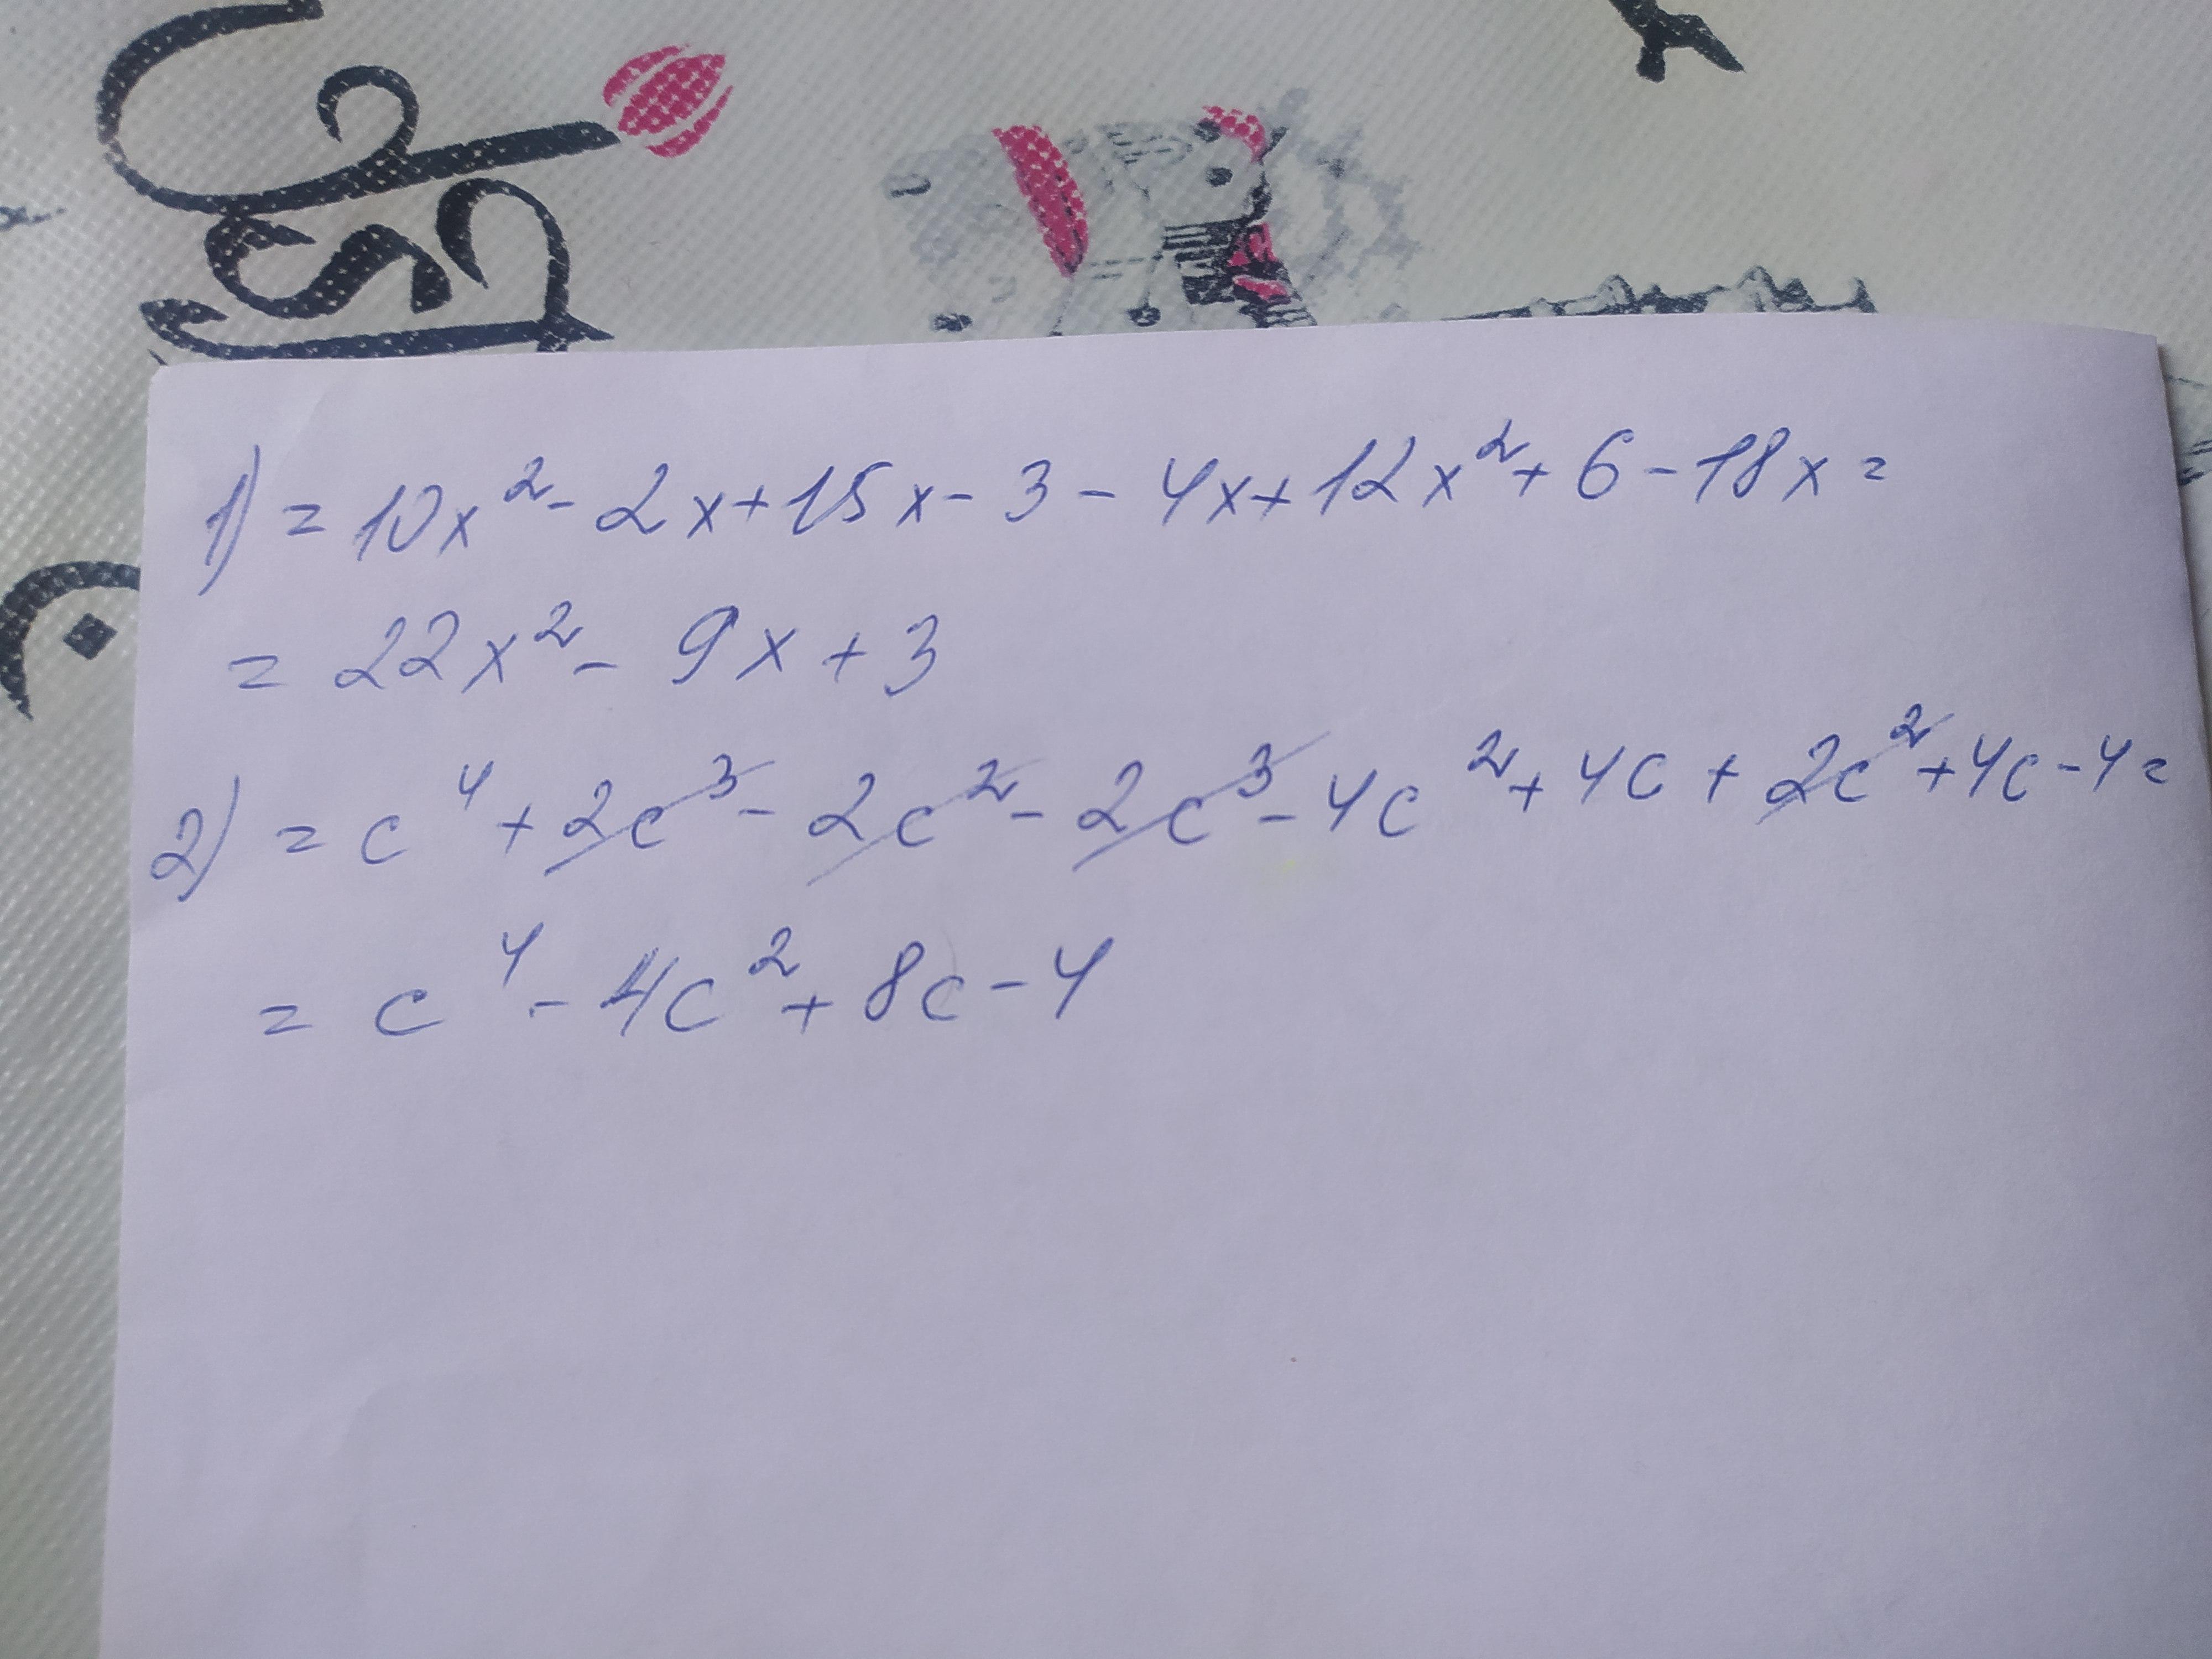 1) = 10x² - 2x + 15x - 3 - 4x + 12x² + 6 - 18x =
= 22x² - 9x + 3
2) = c⁴ + 2c³ - 2c² - 2c³ - 4c² + 4c + 2c² + 4c - 4 =
= c⁴ - 4c² + 8c - 4